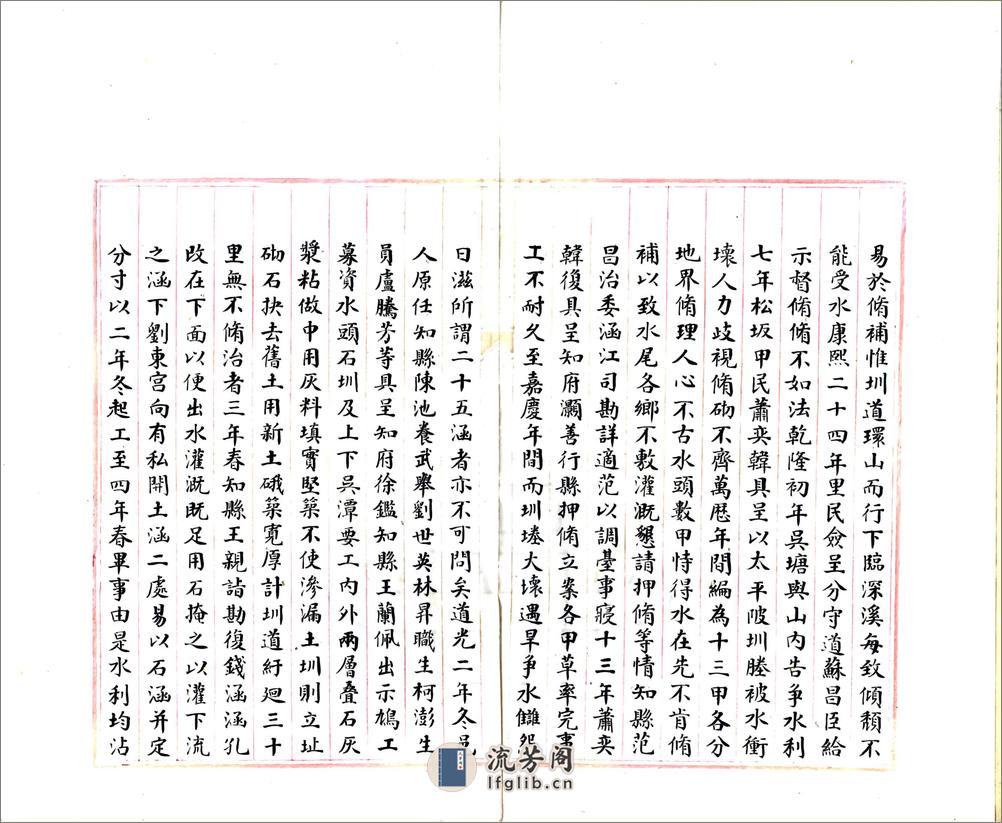 易於脩補惟圳道環山而行下臨深溪每致傾頽不
能受水康熙二十四年里民僉呈分守道蘇昌臣給
示督脩脩不如法乾隆初年吳塘與山内告爭水利
七年松坂甲民蕭奕韓具呈以太平陂圳塍被水衝
壞人力歧視脩砌不齊萬歷年間編為十三甲各分
地界脩理人心不古水頭數甲恃得水在先不肯脩
補以致水尾各鄉不敷灌溉懇請押脩等情知縣范
昌治委涵江司勘詳適范以調臺事寢十三年蕭奕
韓復具呈知府灝善行縣押脩立案各甲草率完事
工不耐久至嘉慶年間而圳塍大壞遇旱爭水讎怨
日滋所謂二十五涵者亦不可問矣道光二年冬邑
人原任知縣陳池養武舉劉世英林昇職生柯澎生
員盧騰芳等具呈知府徐鑑知縣王蘭佩出示鳩工
募資水頭石圳及上下吳潭要工内外兩層叠石灰
漿粘做中用灰料填實堅築不使滲漏土圳則立址
砌石抉去舊土用新土硪築寬厚計圳道紆廻三十
里無不脩治者三年春知縣王親詣勘復錢涵涵孔
改在下面以便出水灌溉既足用石掩之以灌下流
之涵下劉東宫向有私開土涵二處易以石涵并定
分寸以二年冬起工至四年春畢事由是水利均沾
流芳阁
lfglib.cn